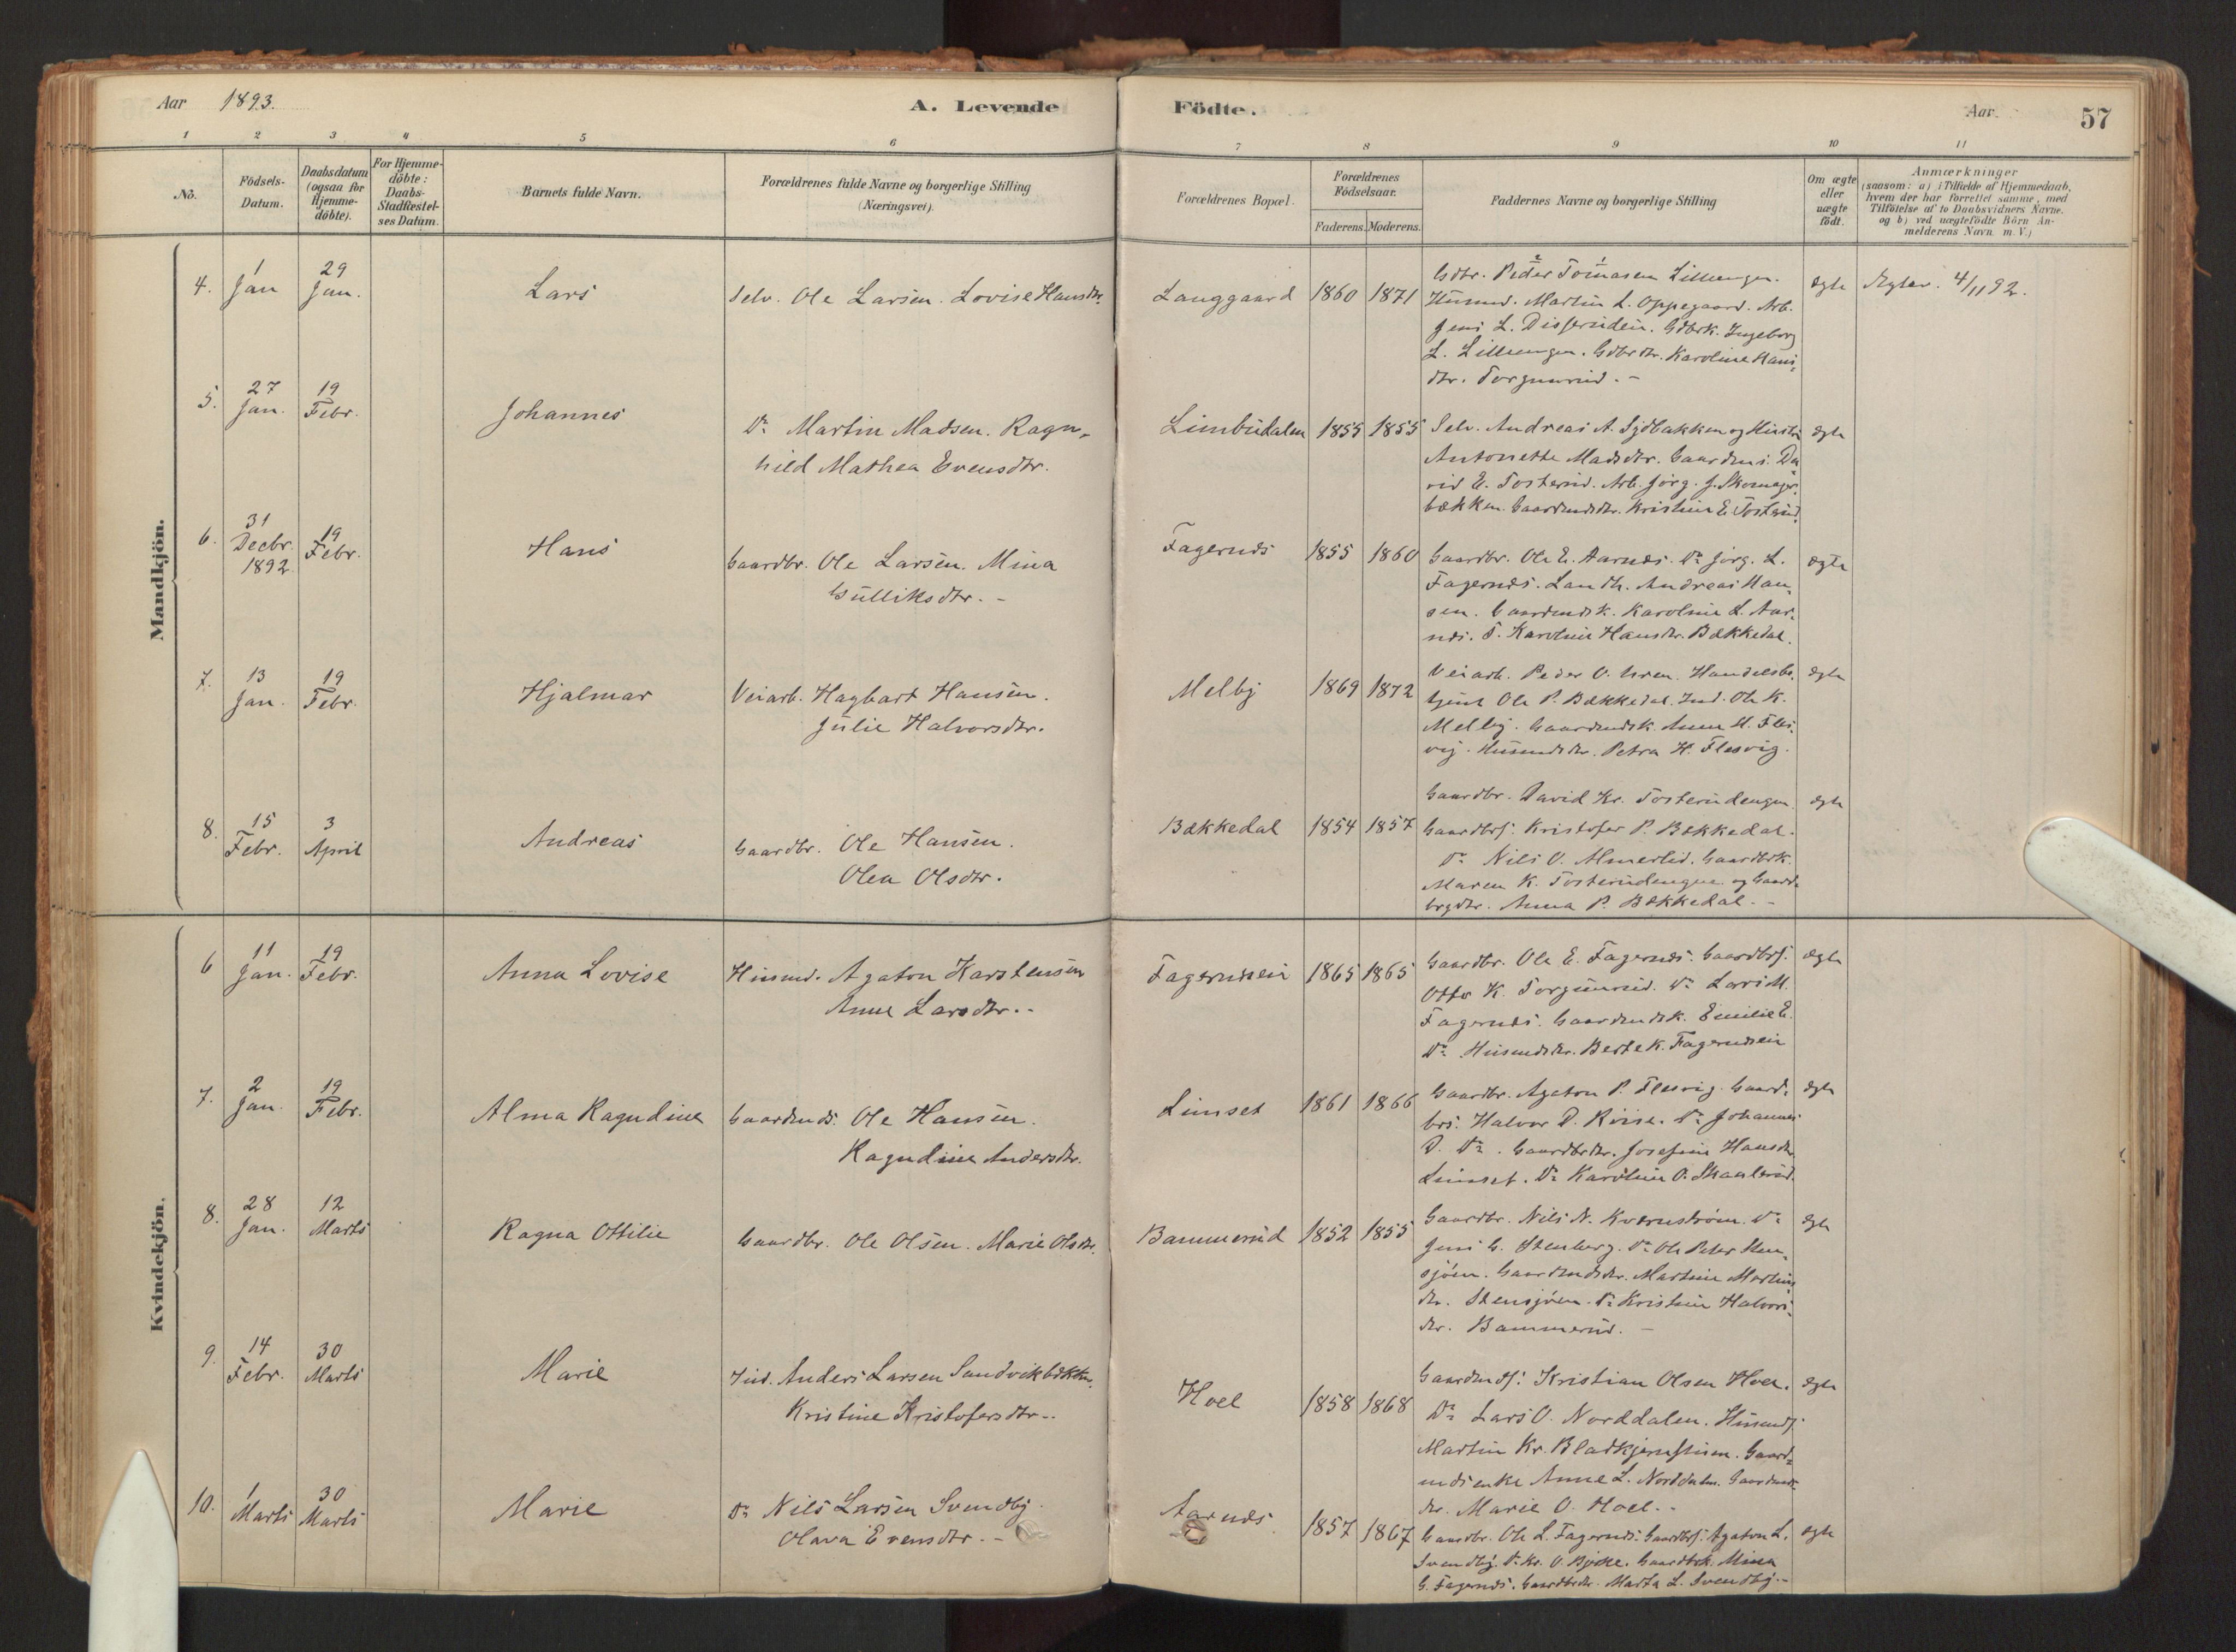 Aar 1893.
A. Levende Födte.
Aar
57
1 2 3 4 5 6 7 8 9 10 11
No.
Födsels-Datum.
Daabsdatum (ogsaa for Hjemme-döbte).
For Hjemme-döbte: Daabs-Stadfæstel-ses Datum.
Barnets fulde Navn.
Forældrenes fulde Navne og borgerlige Stilling (Næringsvei).
Forældrenes Bopæl.
Forældrenes Födselsaar.
Faderens. Moderens.
Faddernes Navne og borgerlige Stilling
Om ægte eller uægte födt.
Anmærkninger
(saasom: a) i Tilfælde af Hjemmedaab,
hvem der har forrettet samme, med
Tilföielse af to Daabsvidners Navne.
og b) ved uægtefödte Börn An-
melderens Navn m. V.)
Mandkjön.
4. 1 Jan 29 Jan. Lars Selv. Ole Larsen. Lovise Hansdtr. Langgaard 1860 1871 ægte 4/11 92.
Gdbr. Peder Tomasen Lilleengen.
Husmd. Martin L. Oppegaard. Arb.
Jens L. Disserudein. Gdbrk. Ingeborg
L. Lilleengen. Gdbrdtr. Karoline Hans-
dtr. Torgunrud. -
5. 27 Jan. 19 Febr. Johannes Do Martin Madsen. Ragn-
hild Mathea Evensdtr.
Limbudalen 1855 1855 ægte
Selv. Andreas A. Sydbakken og Hustru
Antonette Madsdtr. Gaardmds. Da-
vid E. Tosterud. Arb. Jørg. J. Skomager-
bækken. Gaardmdsdtr. Kristine E. Tosterud.
6. 31 Decbr. 1892 19 Febr. Hans Gaardbr. Ole Larsen. Mina
Gulliksdtr. -
Fagernæs 1855 1860 ægte
Gaardbr. Ole E. Aarnæs. Do Jørg. L.
Fagernæs. Landh. Andreas Han-
sen. Gaardmdsk. Karoline L. Aar-
næs. T. Karoline Hansdtr. Bækkedal.
7. 13 Jan. 19 Febr. Hjalmar Veiarb. Hagbart Hansen.
Julie Halvorsdtr.
Melby 1869 1872 ægte
Veiarb. Peder O. Uren. Handelsbe-
tjent Ole P. Bækkedal. Ind. Ole K.
Melby. Gaardmdsk. Anne H. Fles-
vig. Husmdsdtr. Petra H. Flesvig.
8. 15 Febr. 3 April Andreas Gaardbr. Ole Hansen.
Olea Olsdtr.
Bækkedal 1854 1857 ægte
Gaardbr. David Kr. Tosterudengen
Gaardbrs. Kristofer P. Bækkedal.
Do Nils O. Almerlid. Gaardbrk.
Maren K. Tosterudengen og Gaard-
brgdtr. Anna P. Bækkedal. -
Kvindekjön.
6 11 Jan. 19 Febr. Anna Lovise Husmd. Agaton Karstensen
Anne Larsdtr. -
Fagernæsein 1865 1865 ægte
Gaardbr. Ole E. Fagernæs. Gaardbrs.
Otto K. Torgunrud. Do Lars M.
Fagernæs. Gaardmdsk. Emilie E.
Do Husmdsdtr. Berte K. Fagernæsein
7. 2 Jan. 19 Febr. Alma Ragndine Gaardmds. Ole Hansen.
Ragndine Andersdtr.
Limset 1861 1866 ægte
Gaardbr. Agaton P. Flesvig. Gaard-
brs. Halvor D. Riise. Do Johannes
D. Do. Gaardbrdtr. Josefine Hansdtr.
Limset. Do Karoline O. Skaalerud.
8. 28 Jan. 12 Marts Ragna Ottilie Gaardbr. Ole Olsen. Marie Olsdtr. Bammerud 1852 1855 ægte
Gaardbr. Nils N. Kværnstrøm. Do
Jens G. Stenberg. Do Ole Peter Sten-
sjøen. Gaardmdsdtr. Martine Martins-
dtr. Stensjøen. Do Kristine Halvors-
dtr. Bammerud. -
9. 14 Febr. 30 Marts Marie Ind. Anders Larsen Sandvikbækken.
Kristine Kristofersdtr. -
Hoel 1858 1868 ægte
Gaardmds. Kristian Olsen Hoel.
Do Lars O. Norddalen. Husmds.
Martin Kr. Bladkjernstuen. Gaard-
mdsenke Anne L. Norddalen. Gaardmds-
dtr. Marie O. Hoel. -
10. 1 Marts 30 Marts Marie Do Nils Larsen Svendby.
Olava Evensdtr. -
Aarnæs 1857 1867 ægte
Gaardbr. Ole L. Fagernæs. Gaardbrs. Agaton L.
Svendby. Do Kr. O. Bjerke. Gaardbrk. Mina
G. Fagernæs. Gaardbrdtr. Marta L. Svendby. -